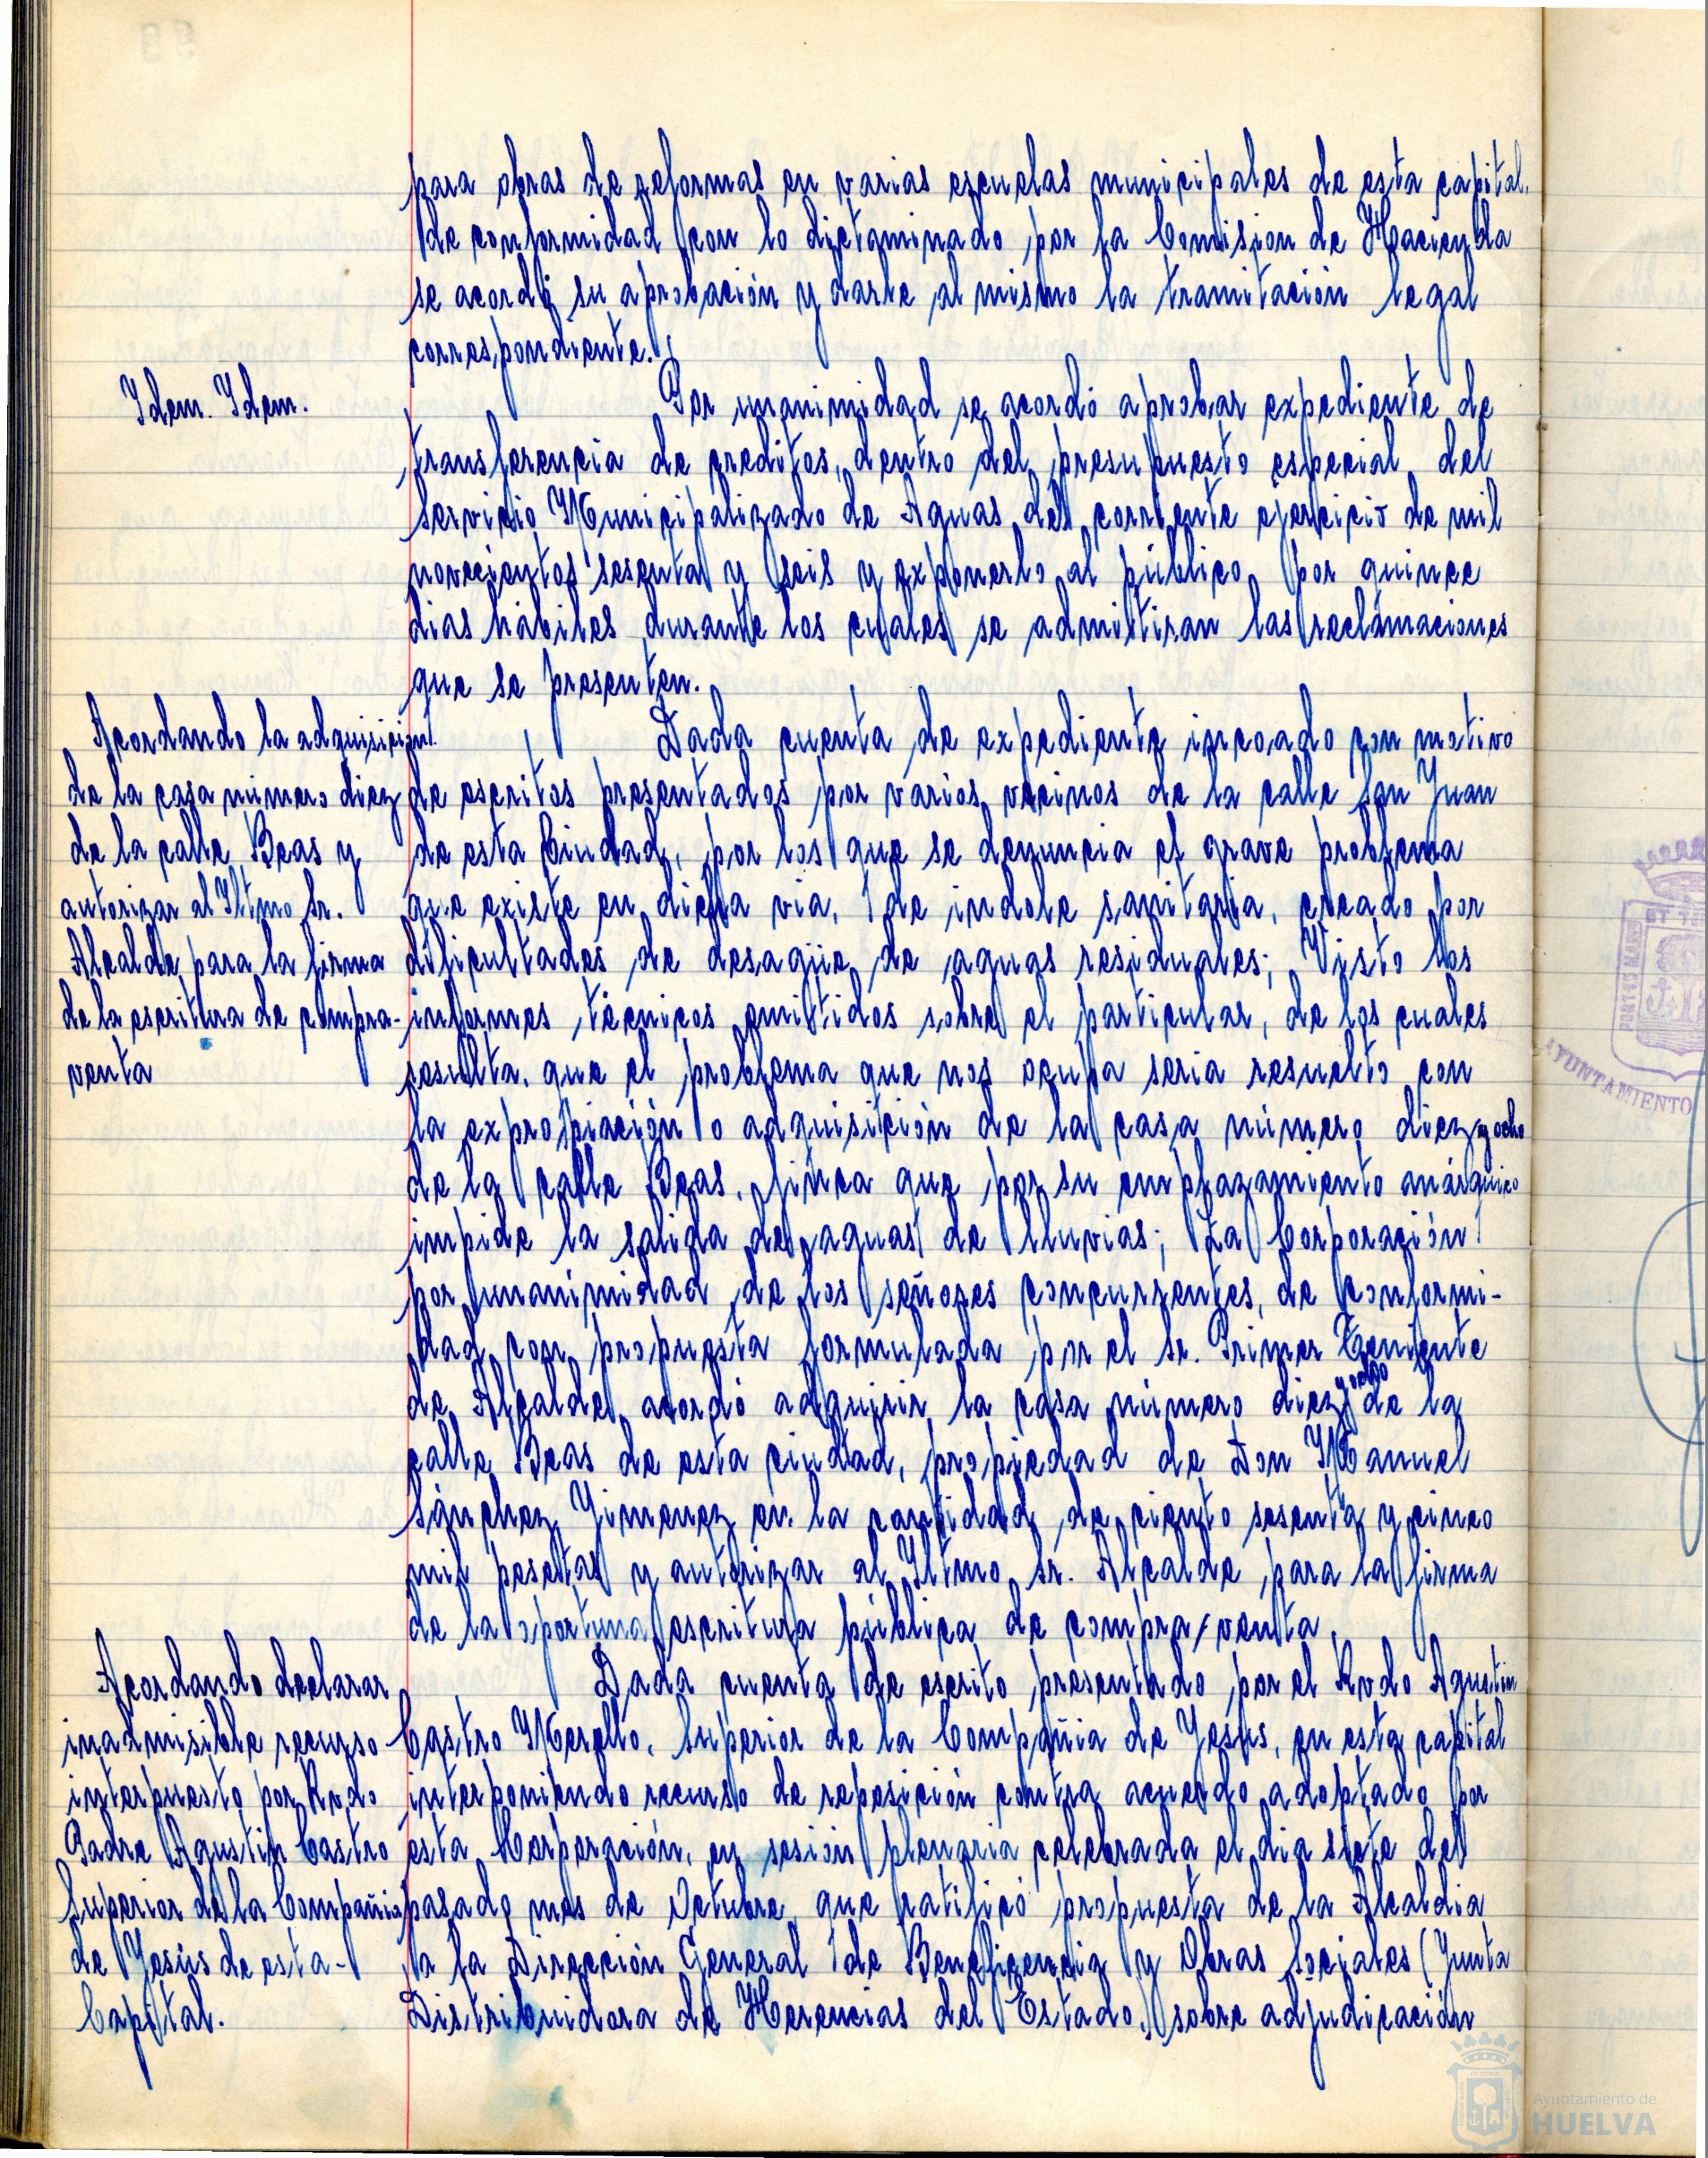 para obras de reformas en varias escuelas municipales de esta capital,
de conformidad con lo dictaminado por la Comision de Hacienda
se acordó su aprobación y darle al mismo la tramitación legal
correspondiente.
Idem. Idem.
Por unanimidad se acordó aprobar expediente de
transferencia de creditos, dentro del presupuesto especial del
Servicio Municipalizado de Aguas del corriente ejercicio de mil
novecientos sesenta y seis y exponerlo al público por quince
dias hábiles durante los cuales se admitiran las reclamaciones
que se presenten.
Acordando la adquisición
de la casa número diez
de la calle Beas y
autorizar al Iltmo Sr.
Alcalde para la firma
de la escritura de compra-
venta
Dada cuenta de expediente incoado con motivo
de escritos presentados por varios vecinos de la calle San Juan
de esta Ciudad, por los que se denuncia el grave problema
que existe en dicha via, de indole sanitaria, creado por
dificultades de desagüe de aguas residuales; Visto los
informes técnicos emitidos sobre el particular, de los cuales
resulta, que el problema que nos ocupa seria resuelto con
la expropiación o adquisición de la casa número diez y ocho
de la calle Beas, finca que por su emplazamiento anárquico
impide la salida de aguas de lluvias; La Corporación
por unanimidad de los señores concurrentes, de conformi-
dad con propuesta formulada por el Sr. Primer Teniente
de Alcalde, acordó adquirir la casa número diez y ocho de la
calle Beas de esta ciudad, propiedad de Don Manuel
Sánchez Yimenez en la cantidad de ciento sesenta y cinco
mil pesetas y autorizar al Iltmo Sr. Alcalde para la firma
de la oportuna escritura pública de compra/venta.
Acordando declarar
inadmisible recurso
interpuesto por Rvdo
Padre Agustin Castro
Superior de la Compañia
de Yesús de esta-
Capital.
Dada cuenta de escrito presentado por el Rvdo Agustin
Castro Merello, Superior de la Compañia de Yesús, en esta capital
interponiendo recurso de reposición contra acuerdo adoptado por
esta Corporación, en sesión plenaria celebrada el dia siete del
pasado mes de Octubre, que ratificó propuesta de la Alcaldia
a la Dirección General de Beneficencia y Obras Sociales (Junta
Distribuidora de Herencias del Estado,) sobre adjudicación
AYUNTAMIENTO
Ayuntamiento de
HUELVA